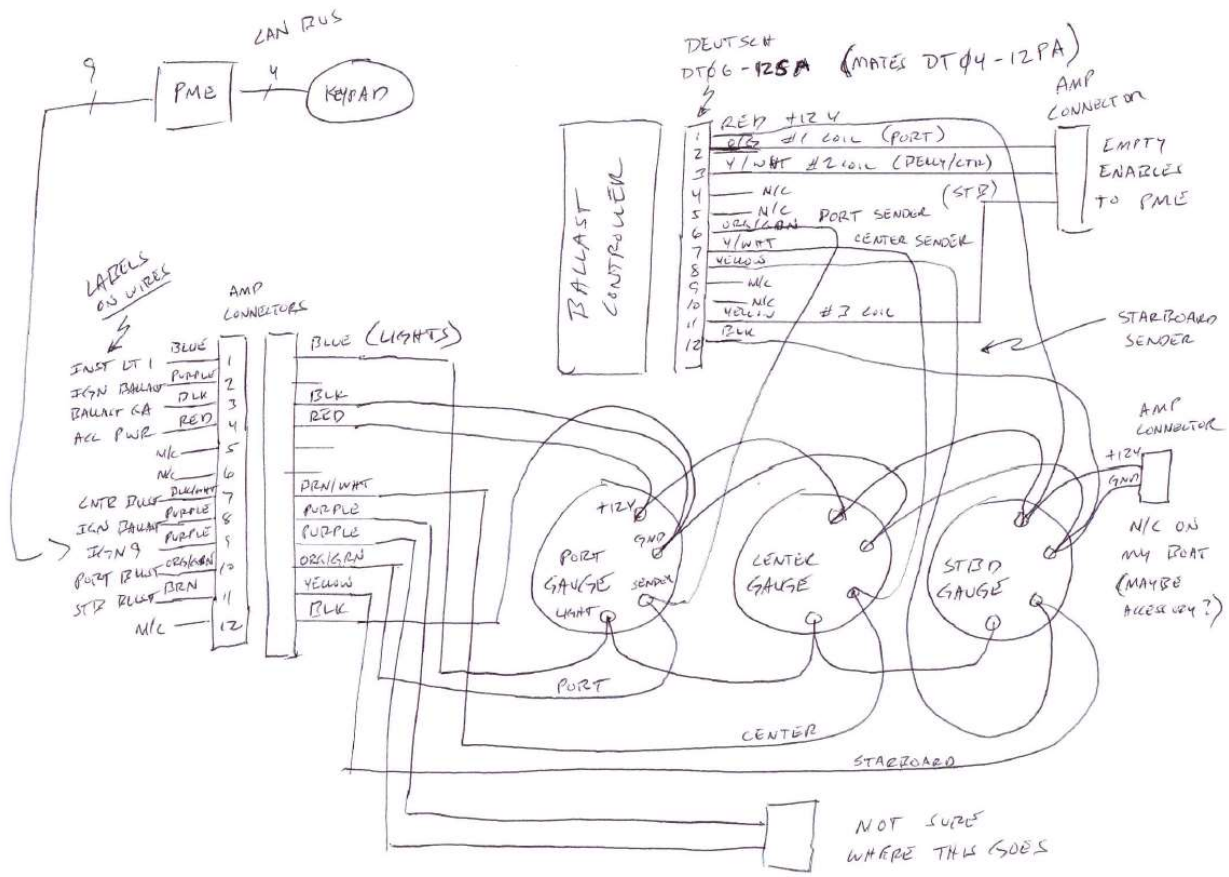 CAN BUS
9
PME
4
KEYPAD
DEUTSCH
DT06-12SA (MATES DT04-12PA)
AMP
CONNECTOR
EMPTY
ENABLES
TO PME
BALLAST
CONTROLLER
1 RED +12V
2 #1 COIL (PORT)
3 Y/WHT #2 COIL (BELLY/CTR)
4 N/C
(STB)
5 N/C
PORT SENDER
6 ORG/GRN
7 Y/WHT
CENTER SENDER
8 YELLOW
9 N/C
10 N/C
11 YELLOW #3 COIL
12 BLK
STARBOARD
SENDER
LABELS
ON WIRES
AMP
CONNECTORS
INST LT 1 BLUE 1
IGN BALLAST PURPLE 2
BALLAST GA BLK 3
ACC PWR RED 4
N/C 5
N/C 6
CNTR BLLST BLK/WHT 7
IGN BALLAST PURPLE 8
IGN 9 PURPLE 9
PORT BLLST ORG/GRN 10
STB BLLST BRN 11
N/C 12
BLUE (LIGHTS)
BLK
RED
BRN/WHT
PURPLE
PURPLE
ORG/GRN
YELLOW
BLK
+12V
GND
PORT
GAUGE SENDER
LIGHT
CENTER
GAUGE
STBD
GAUGE
AMP
CONNECTOR
+12V
GND
N/C ON
MY BOAT
(MAYBE
ACCESSORY?)
PORT
CENTER
STARBOARD
NOT SURE
WHERE THIS GOES